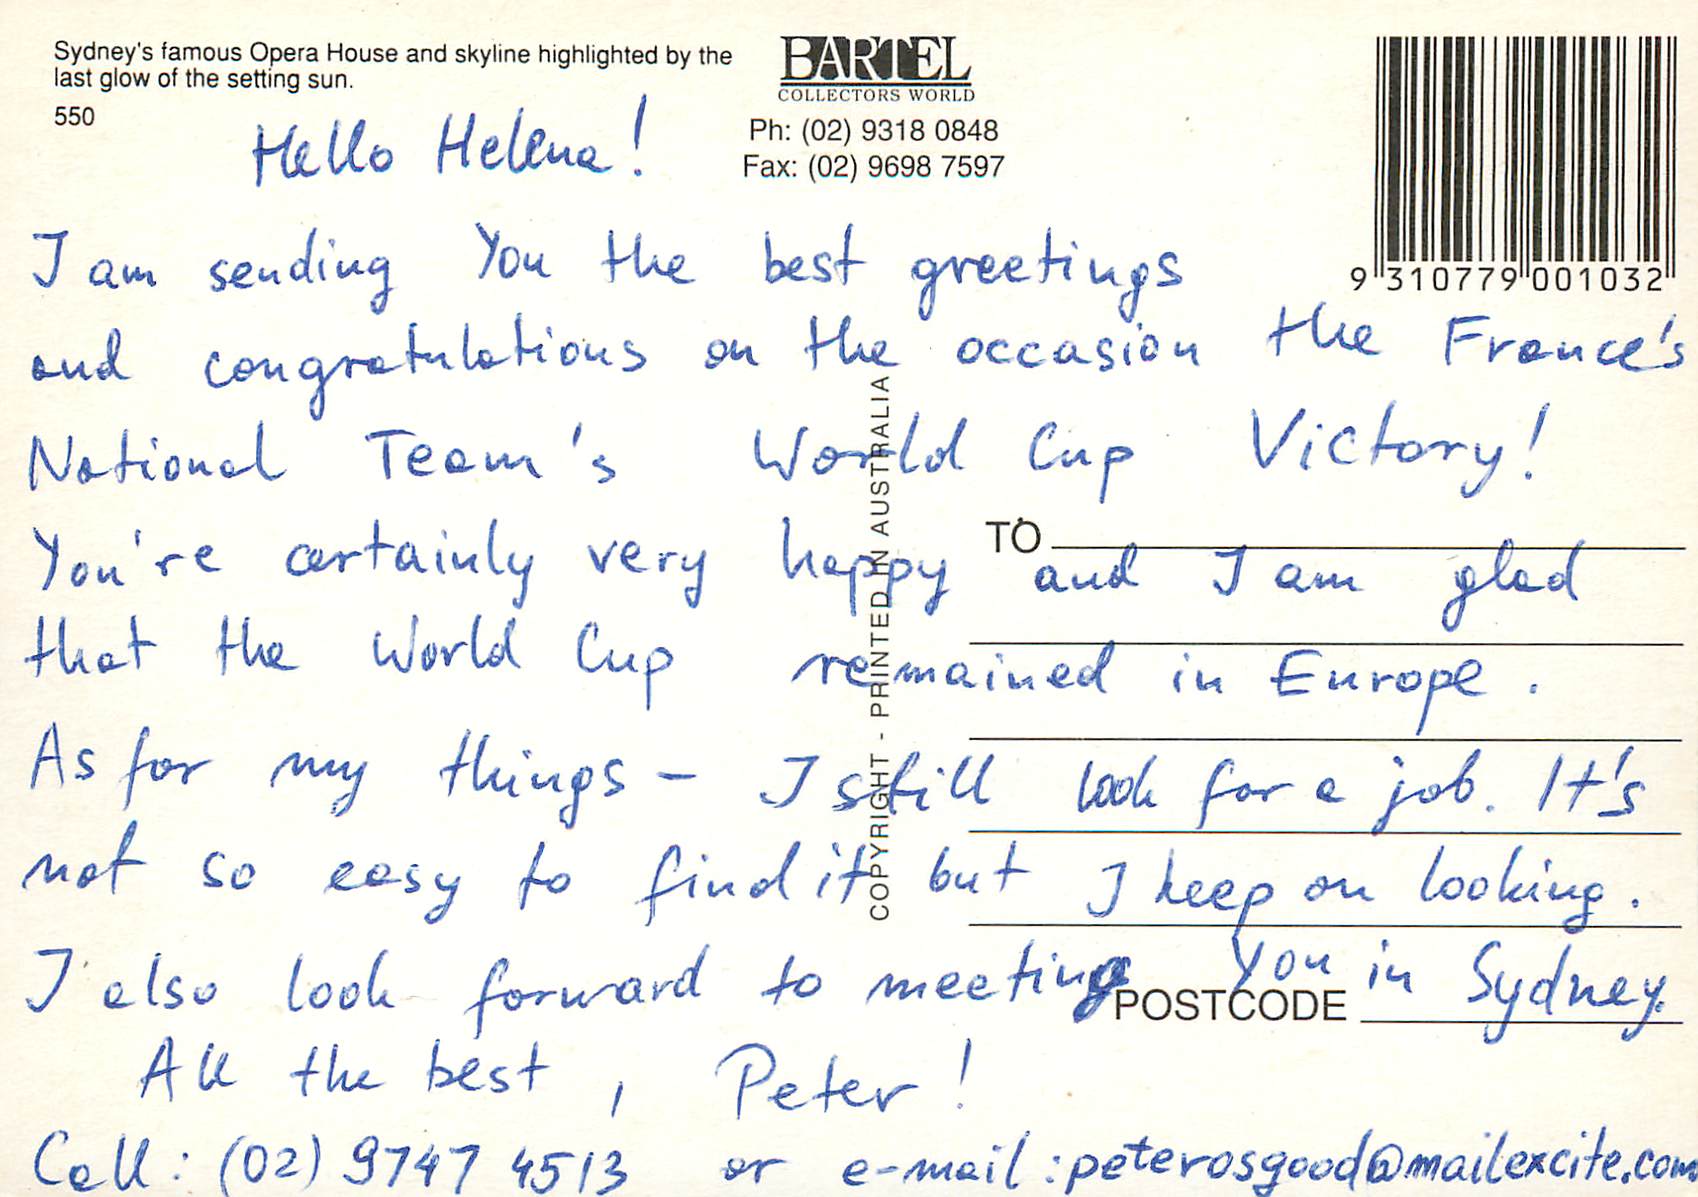 Sydney's famous Opera House and skyline highlighted by the
last glow of the setting sun.
550
BARTEL
COLLECTORS WORLD
Ph: (02) 9318 0848
Fax: (02) 9698 7597
9 310779 001032
Hello Helena!
I am sending You the best greetings
and congratulations on the occasion the France's
National Team's World Cup Victory!
You're certainly very happy and I am glad
that the World Cup remained in Europe.
As for my things - I still look for a job. It's
not so easy to find it but I keep on looking.
I also look forward to meeting You in Sydney.
All the best, Peter!
Call: (02) 9747 4513 or e-mail: peterosgood@mailexcite.com
TO
POSTCODE
COPYRIGHT - PRINTED IN AUSTRALIA